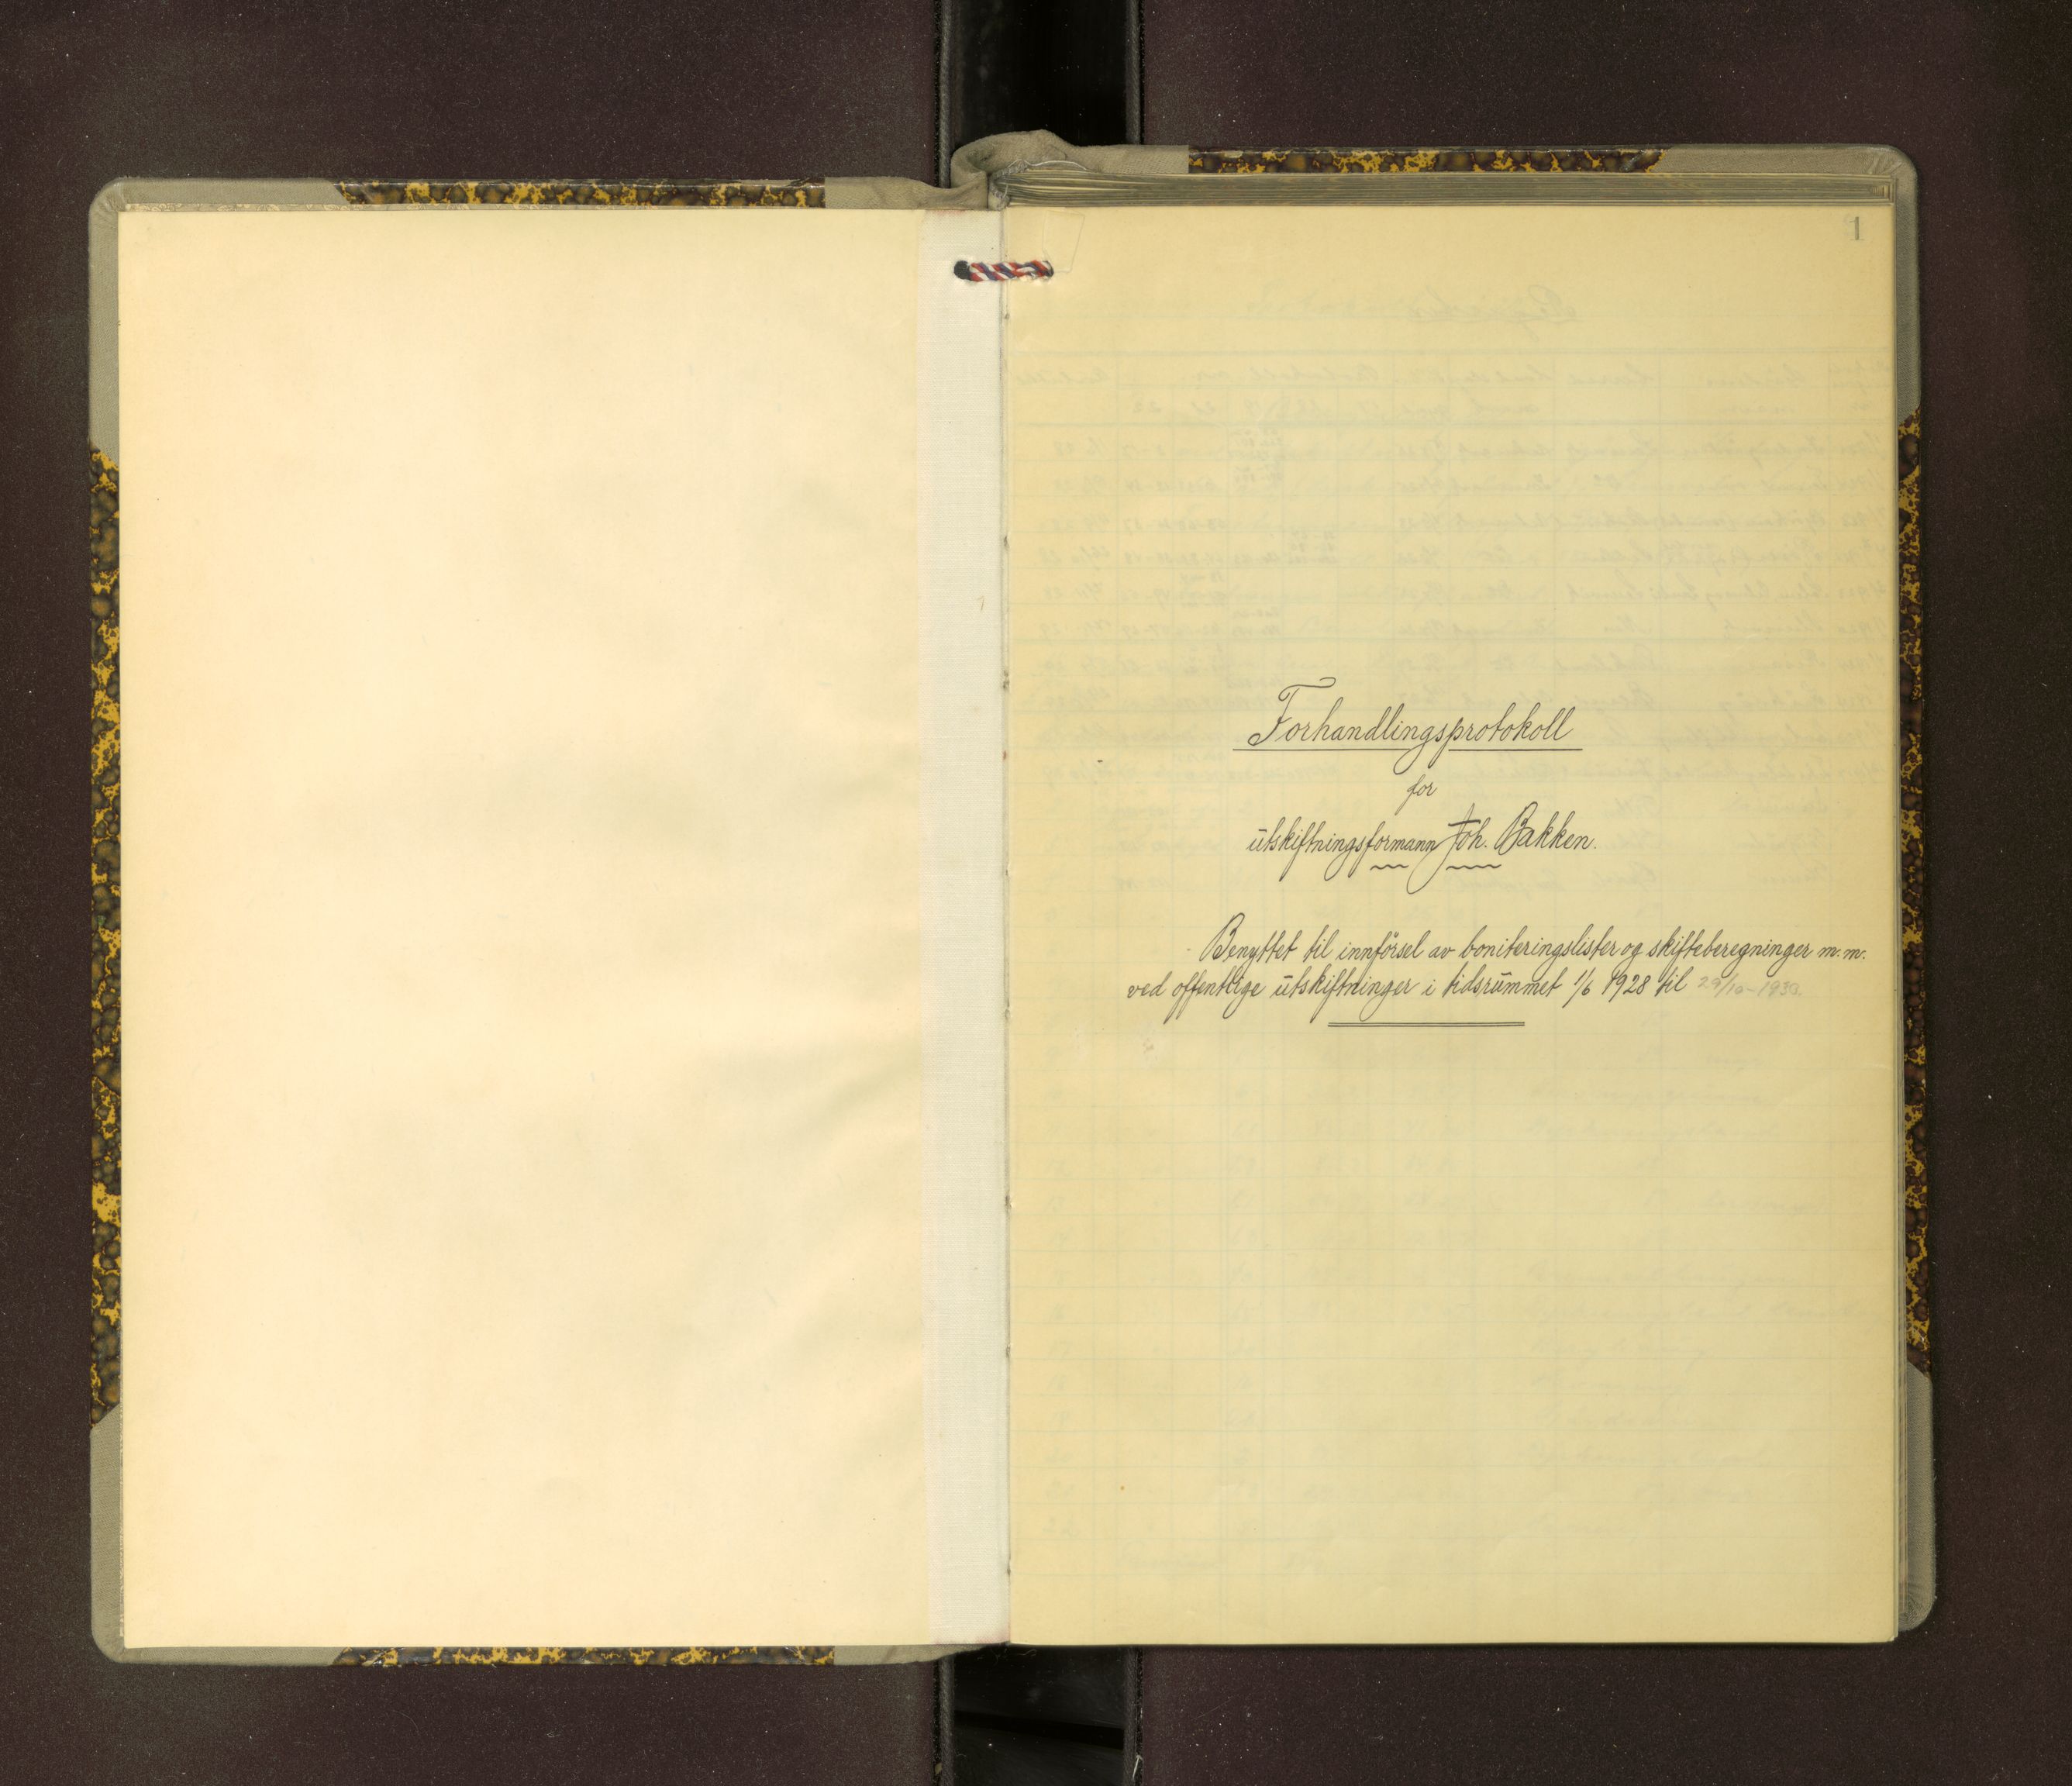 1
Forhandlingsprotokoll
for
utskiftningsformann Joh. Bakken.
Benyttet til innførsel av boniteringslister og skifteberegninger m.m.
ved offentlige utskiftninger i tidsrummet 1/6 1928 til 29/10-1933.